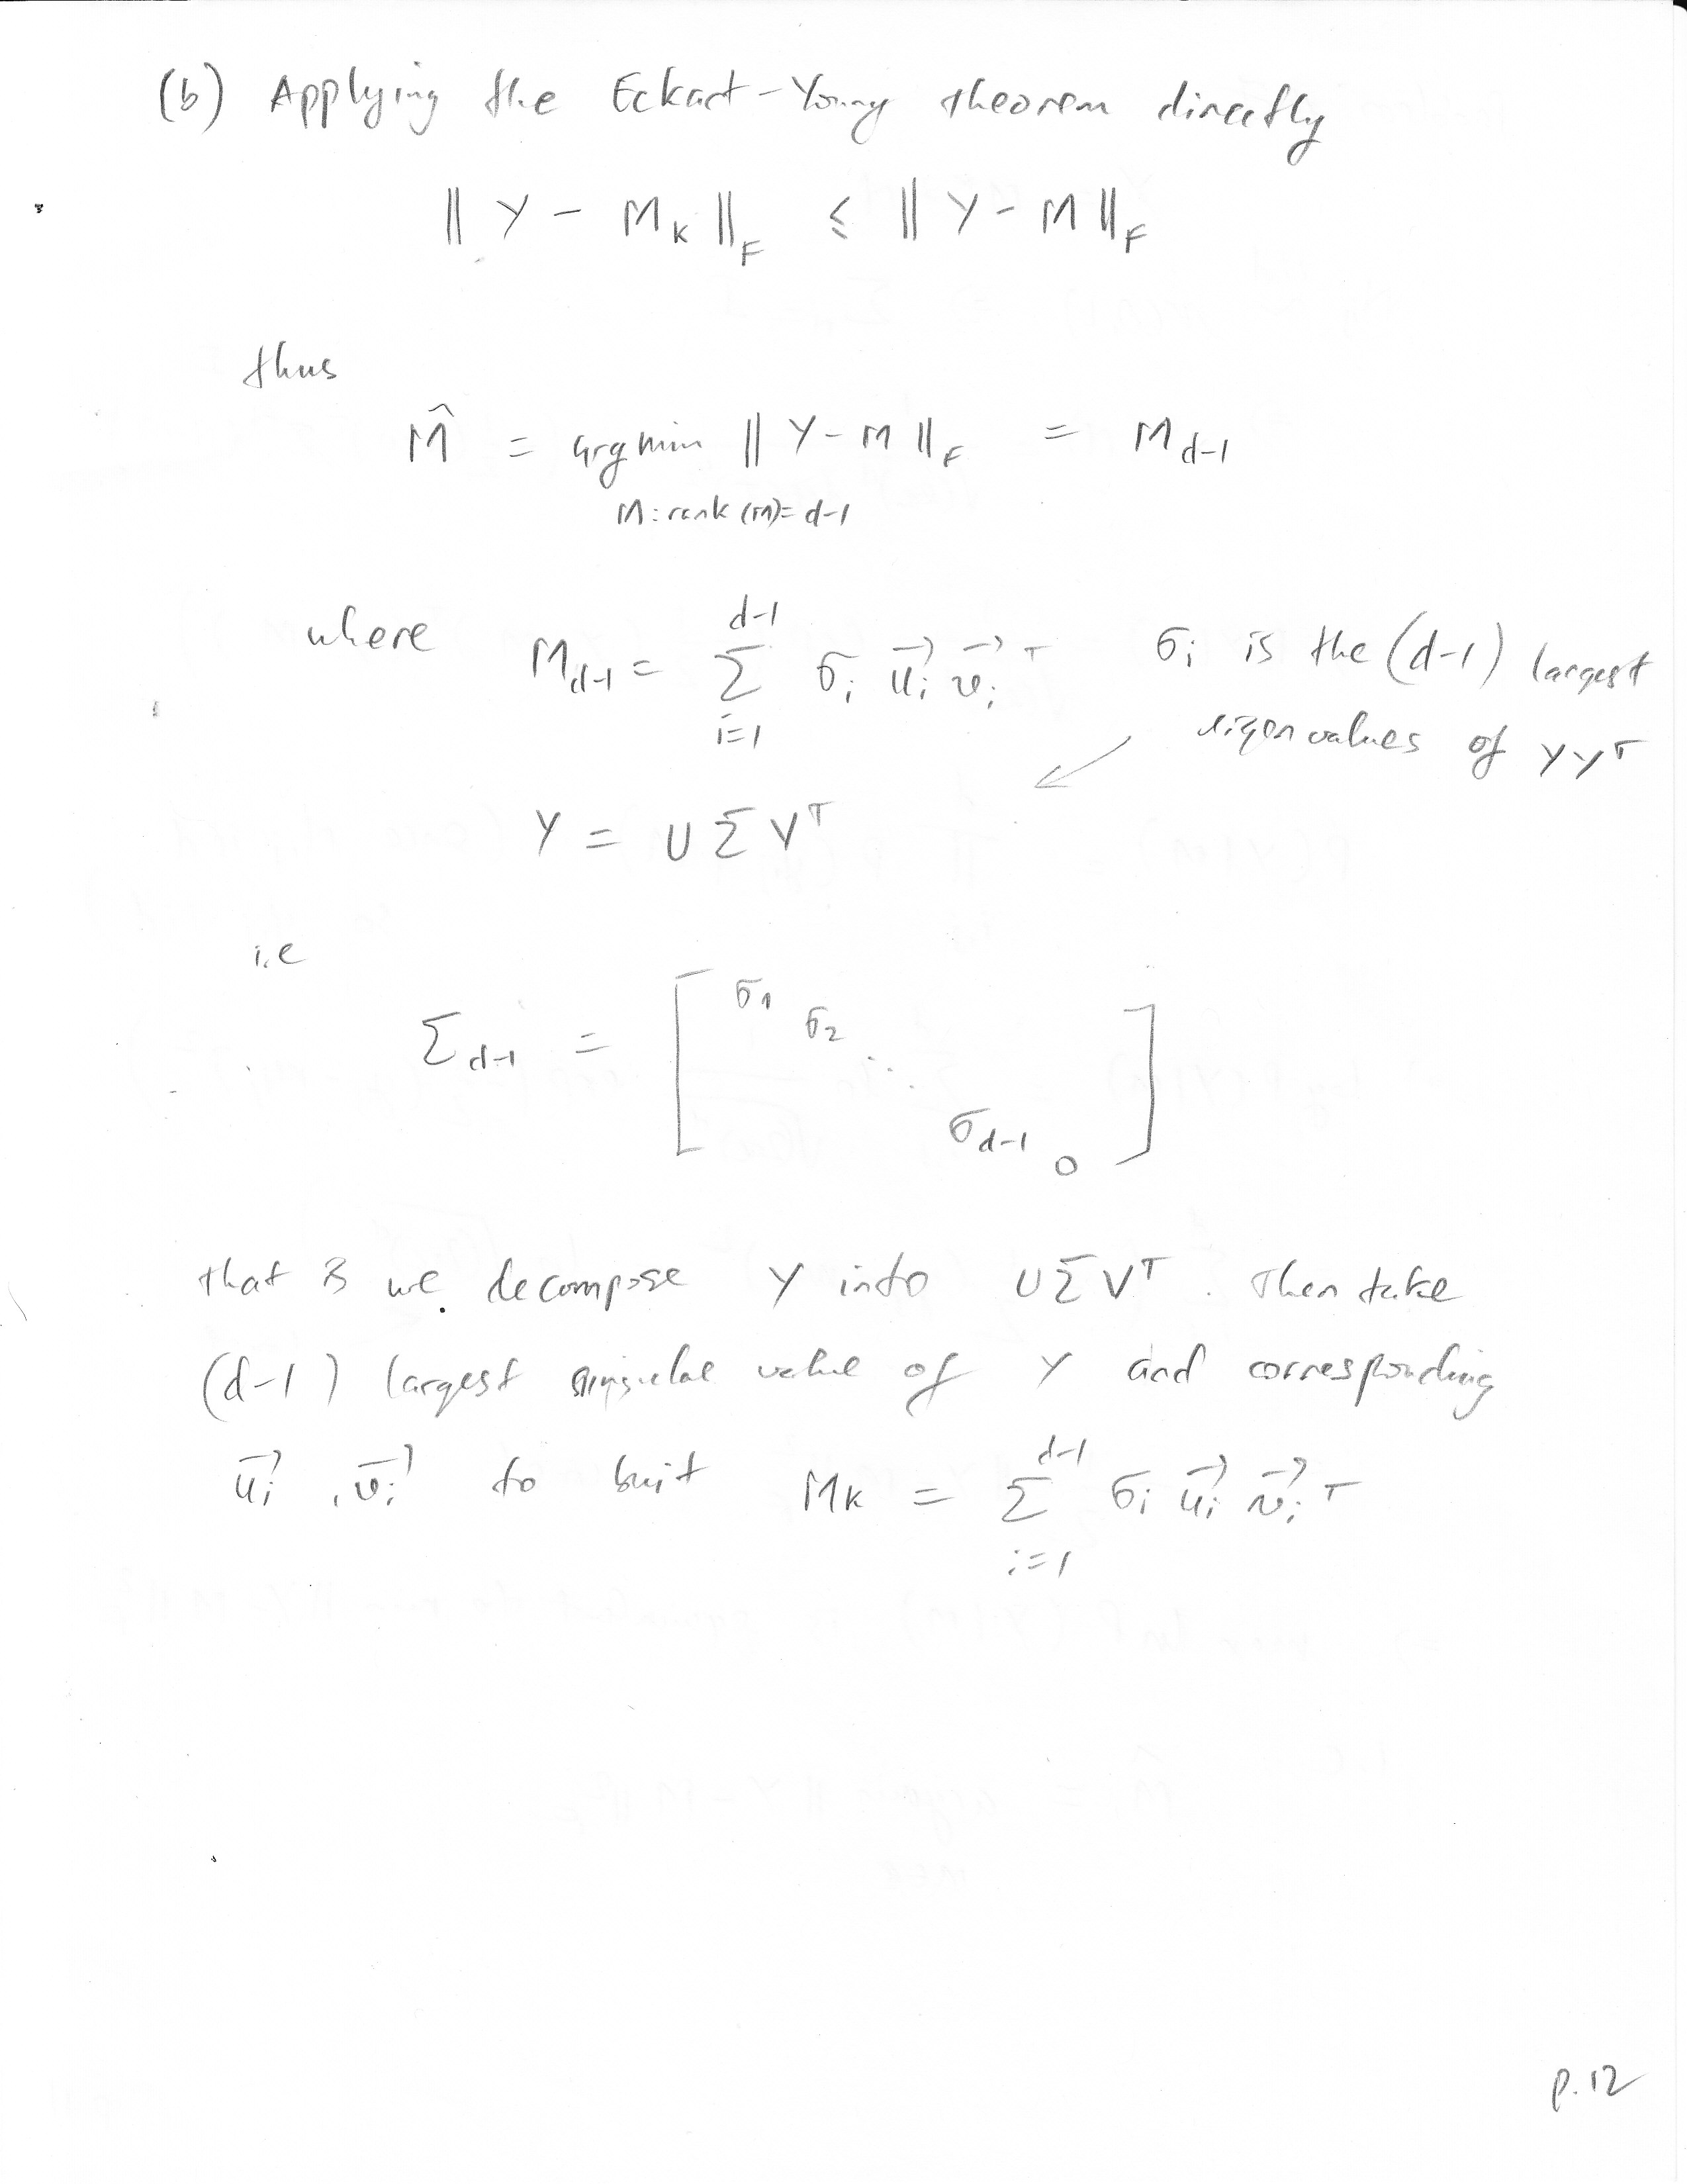 (b) Applying the Eckart-Young theorem directly
‖ Y - M_K ‖_F ≤ ‖ Y - M ‖_F
thus
M̂ = argmin ‖ Y - M ‖_F = M_{d-1}
M : rank (M) = d-1
where M_{d-1} = Σ_{i=1}^{d-1} σ_i u⃗_i v⃗_i^T σ_i is the (d-1) largest
eigenvalues of YY^T
Y = U Σ V^T
i.e
Σ_{d-1} = [ σ_1 σ_2 ... σ_{d-1} 0 ]
that is we decompose Y into UΣV^T. Then take
(d-1) largest singular value of Y and corresponding
u⃗_i, v⃗_i to buit M_K = Σ_{i=1}^{d-1} σ_i u⃗_i v⃗_i^T
p.12